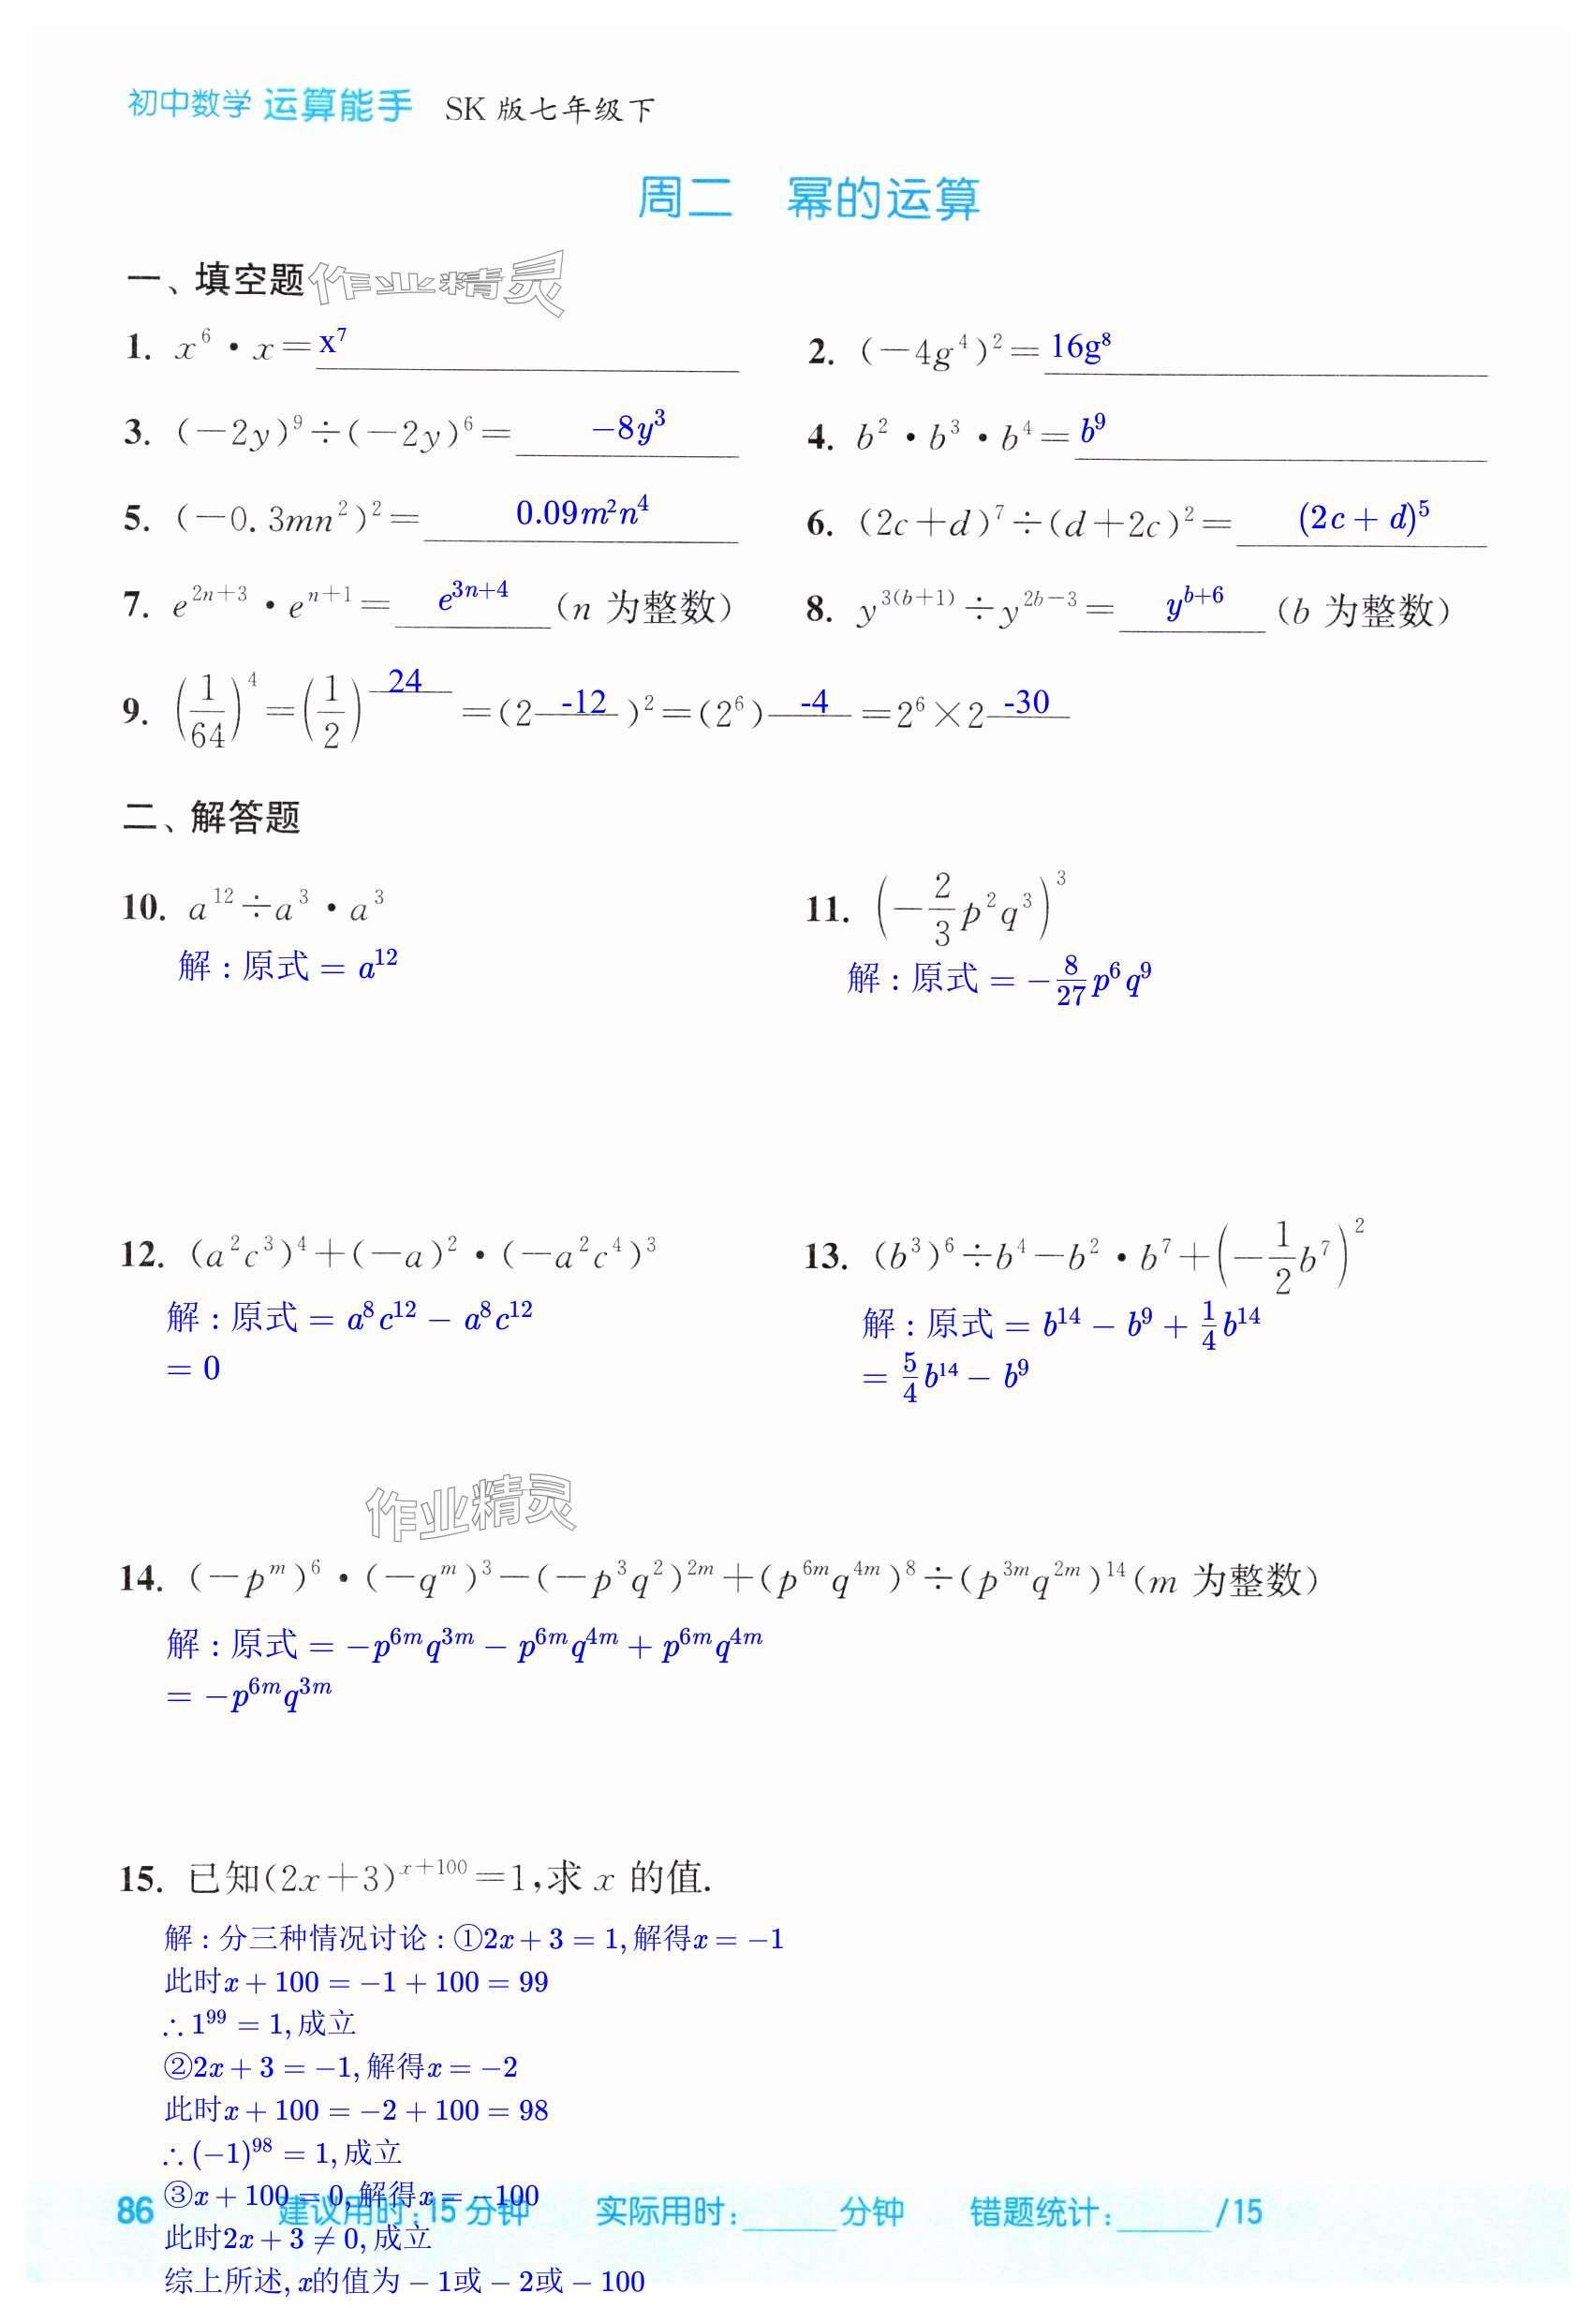 初中数学 运算能手 SK 版七年级下
周二 幂的运算
一、填空题 作业精灵
1. x⁶·x=x⁷
2. (−4g⁴)²=16g⁸
3. (−2y)⁹÷(−2y)⁶=−8y³
4. b²·b³·b⁴=b⁹
5. (−0.3mn²)²=0.09m²n⁴
6. (2c+d)⁷÷(d+2c)²=(2c+d)⁵
7. e^{2n+3}·e^{n+1}=e^{3n+4}(n 为整数)
8. y^{3(b+1)}÷y^{2b−3}=y^{b+6}(b 为整数)
9. (1/64)⁴=(1/2)^{24}=(2^{-12})²=(2⁶)^{-4}=2⁶×2^{-30}
二、解答题
10. a¹²÷a³·a³
解:原式=a¹²
11. (−2/3 p²q³)³
解:原式=−8/27 p⁶q⁹
12. (a²c³)⁴+(−a)²·(−a²c⁴)³
解:原式=a⁸c¹²−a⁸c¹²
=0
13. (b³)⁶÷b⁴−b²·b⁷+(−1/2 b⁷)²
解:原式=b¹⁴−b⁹+1/4 b¹⁴
=5/4 b¹⁴−b⁹
作业精灵
14. (−p^m)⁶·(−q^m)³−(−p³q²)^{2m}+(p^{6m}q^{4m})⁸÷(p^{3m}q^{2m})¹⁴(m 为整数)
解:原式=−p^{6m}q^{3m}−p^{6m}q^{4m}+p^{6m}q^{4m}
=−p^{6m}q^{3m}
15. 已知(2x+3)^{x+100}=1,求 x 的值.
解:分三种情况讨论:①2x+3=1,解得x=−1
此时x+100=−1+100=99
∴1⁹⁹=1,成立
②2x+3=−1,解得x=−2
此时x+100=−2+100=98
∴(−1)⁹⁸=1,成立
③x+100=0,解得x=−100
此时2x+3≠0,成立
综上所述,x的值为−1或−2或−100
86 建议用时:15 分钟 实际用时:______分钟 错题统计:______/15